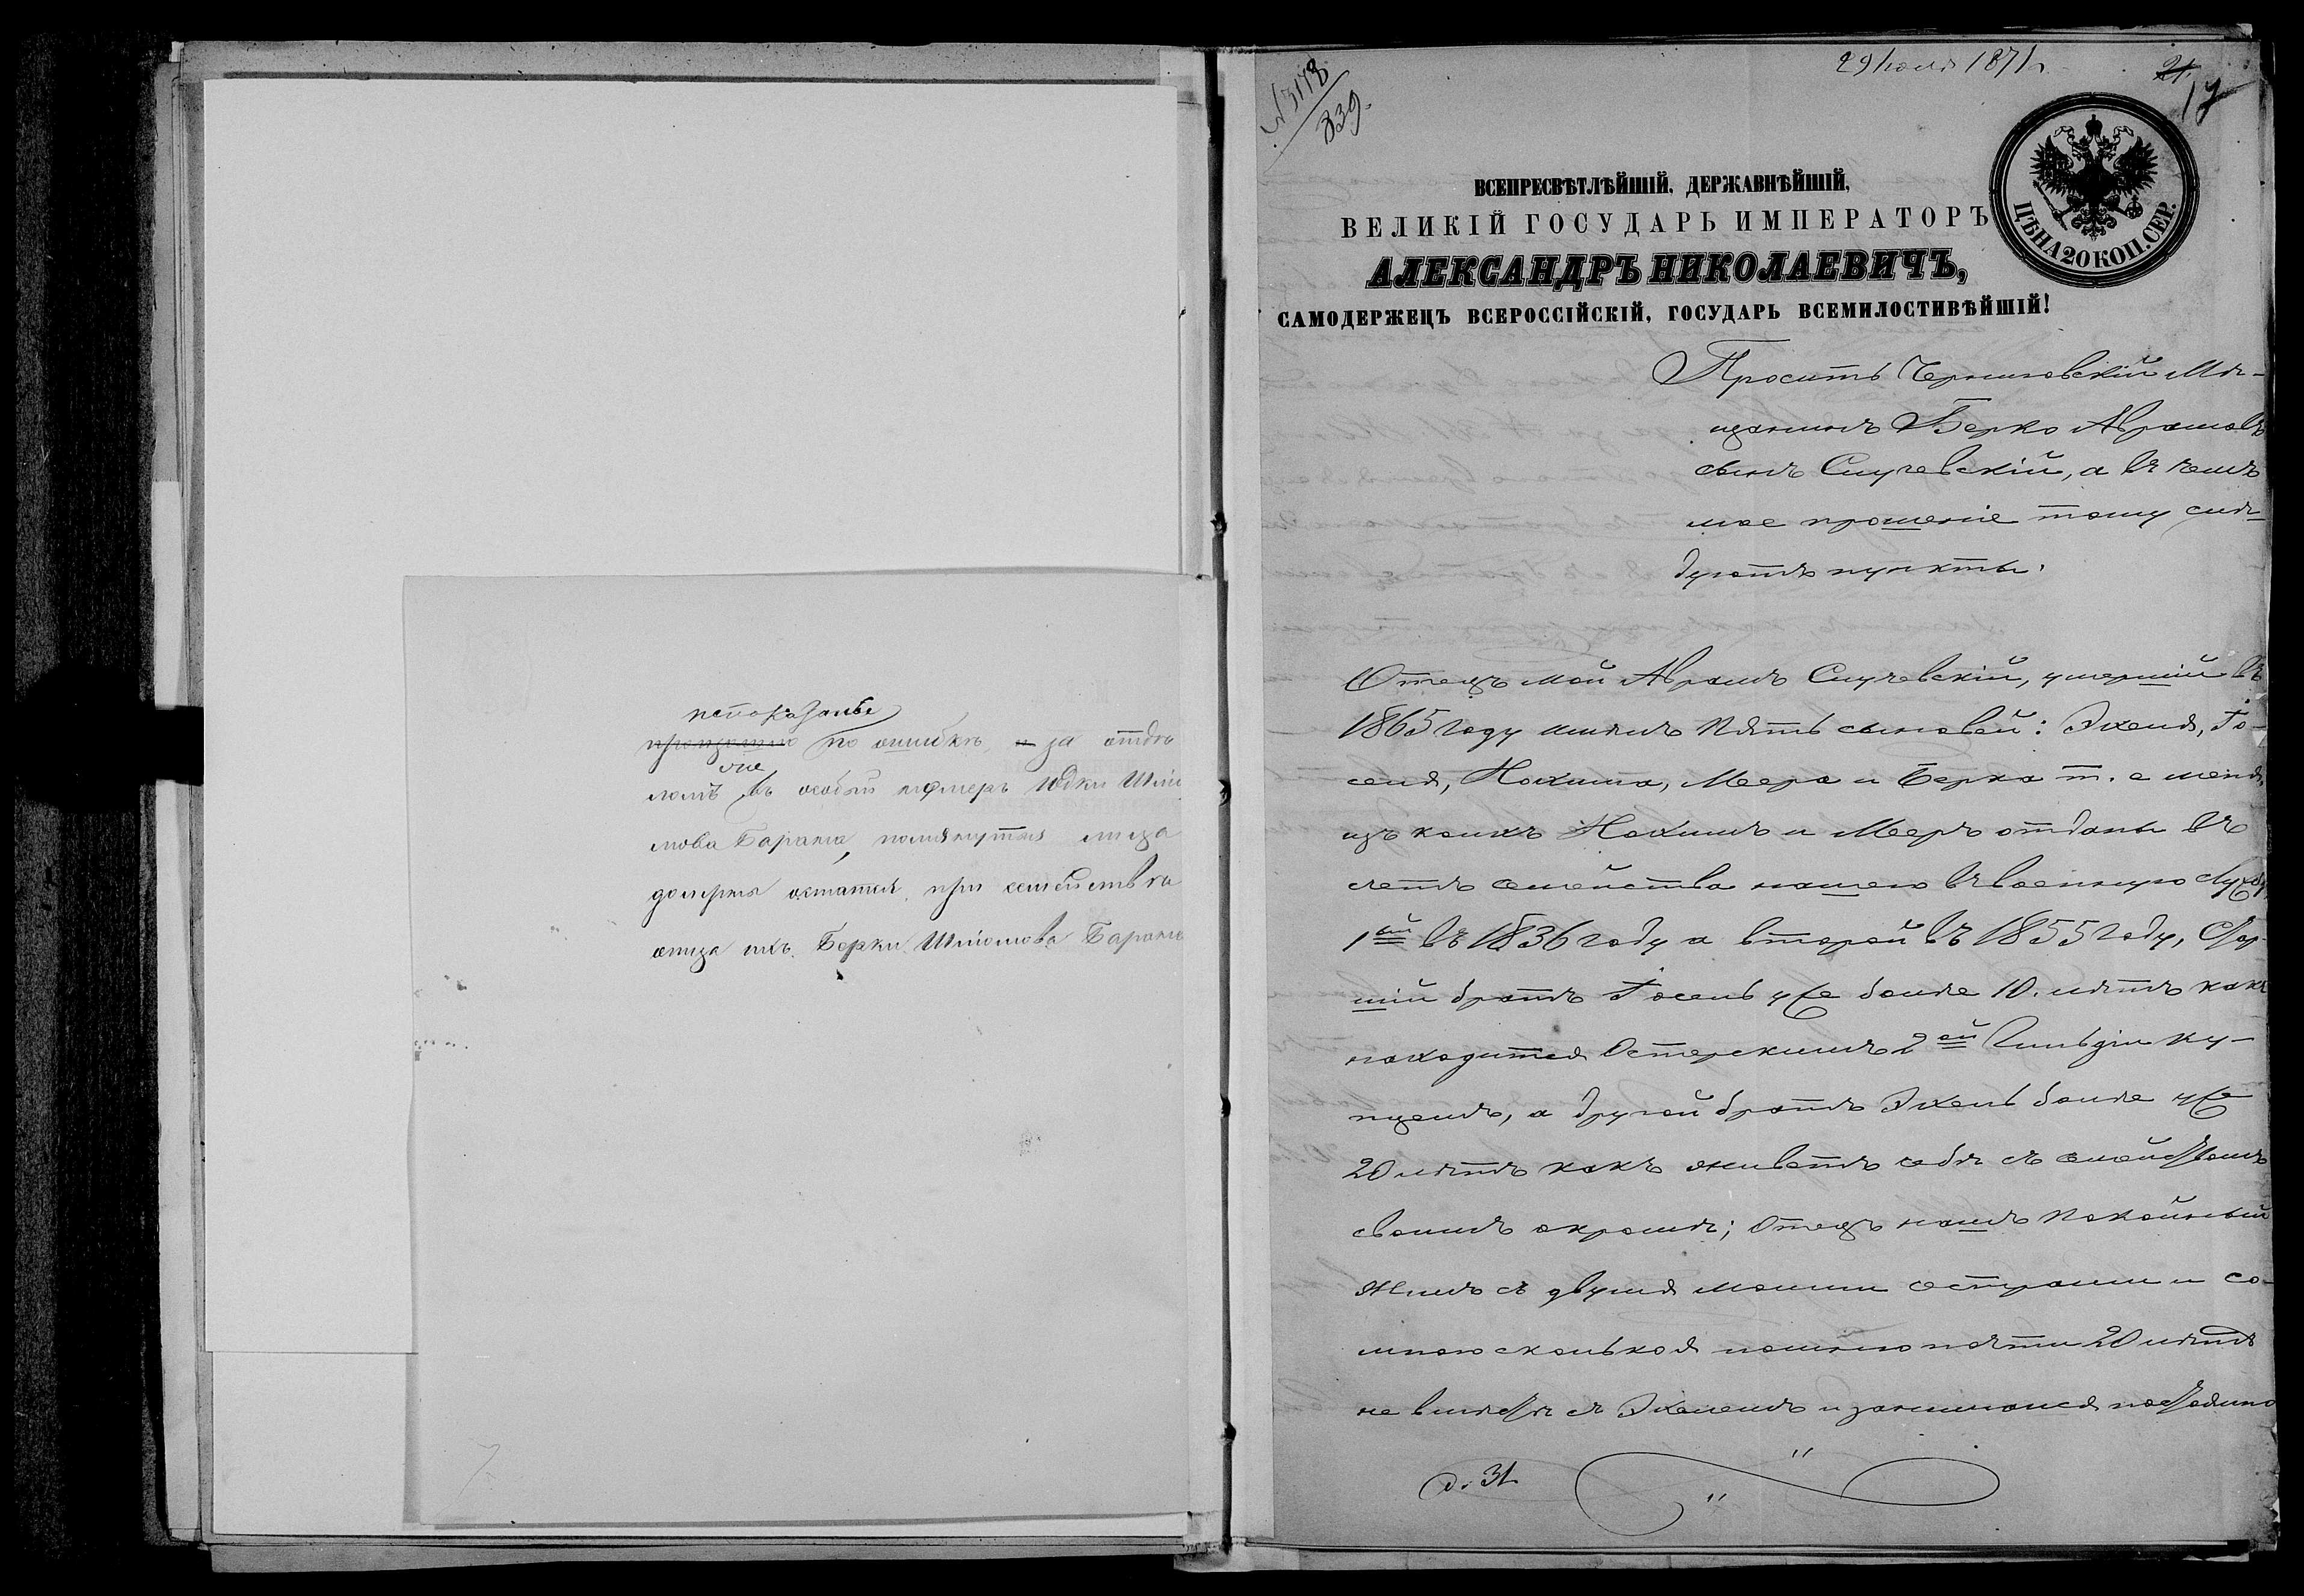 непоказаны
произошло по ошибкѣ, и за отдѣ
леніе
ломъ въ особый номеръ Юдки Шлио
мова Барана, помянутыя лица
должны остатся при семействѣ
отца ихъ Берки Шліомова Барана
29 Іюля 1871 г.
21
17
№ 3178
339.
ВСЕПРЕСВѢТЛѢЙШІЙ, ДЕРЖАВНѢЙШІЙ,
ВЕЛИКІЙ ГОСУДАРЬ ИМПЕРАТОРЪ
АЛЕКСАНДРЪ НИКОЛАЕВИЧЪ,
САМОДЕРЖЕЦЪ ВСЕРОССІЙСКІЙ, ГОСУДАРЬ ВСЕМИЛОСТИВѢЙШІЙ!
ЦѢНА 20 КОП. СЕР.
Проситъ Черниговскій Мѣ-
щанинъ Берко Аврамовъ
сынъ Случевскій, а въ чемъ
мое прошеніе тому слѣ-
дуютъ пункты.
Отецъ мой Аврамъ Случевскій, умершій въ
1865 году имѣлъ пять сыновей: Эхеля, Іо-
селя, Нохима, Меера и Берка т. е меня,
изъ коихъ Нохимъ и Мееръ отданы въ
счетъ семейства нашего въ военную службу
1ый въ 1836 году а второй въ 1855 году, Стар-
шій братъ Іосель уже болѣе 10. лѣтъ какъ
находится Остерскимъ 2ой Гильдіи ку-
пцемъ, а другой братъ Эхель болѣе уже
20 лѣтъ какъ живетъ себѣ съ семействомъ
своимъ окромѣ; Отецъ нашъ покойный
жилъ съ двумя моими сестрами и со-
мною сколько я помню почти 20 лѣтъ
не вмѣстѣ съ Эхелемъ и занимался постоянно
д. 31